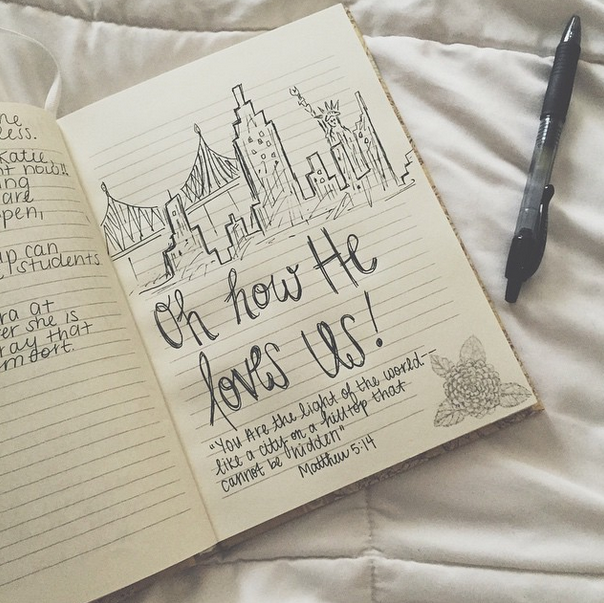 ne
less.
Katie
nt now!!
ing
are
open,
up can
students
ra at
er she is
ray that
mfort.
Oh how He
loves us!
"You Are the light of the world-
like a city on a hilltop that
cannot be hidden"
Matthew 5:14